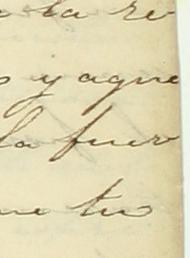 a la re
s y aque
la fuer
ue tu